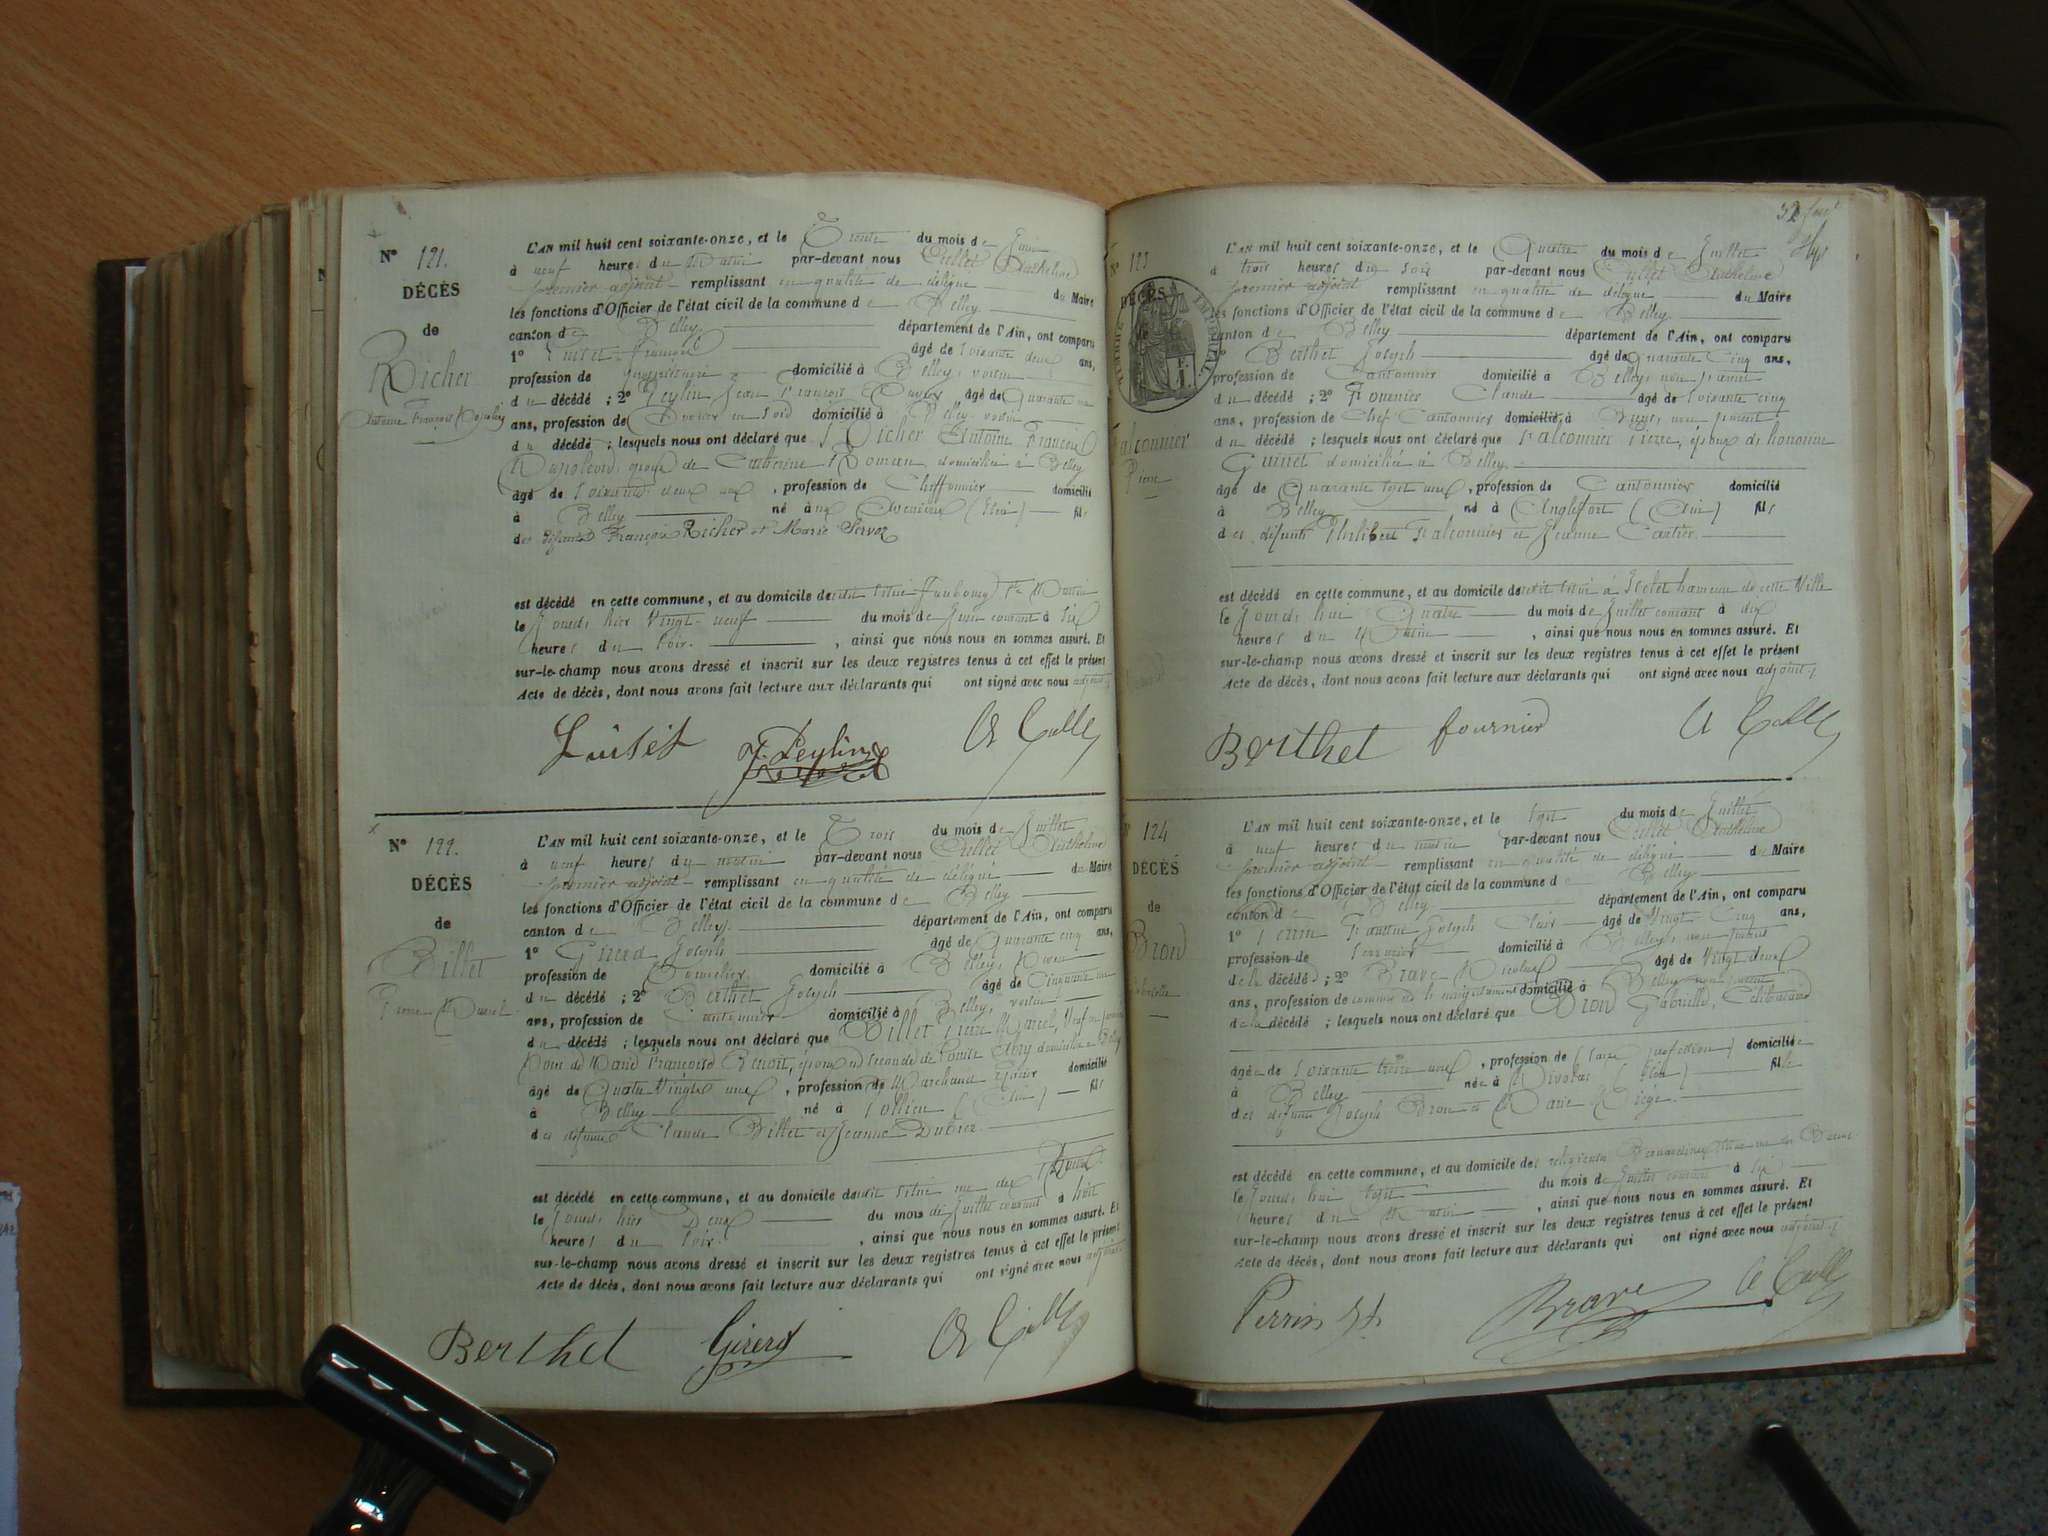 Nº 121.
DÉCÈS
de
Richer
Antoine François
L'AN mil huit cent soixante-onze, et le Trente du mois de Juin
à neuf heures du Matin par-devant nous Anthelme
premier adjoint remplissant en qualité de délégué du Maire
les fonctions d'Officier de l'état civil de la commune de Belley
canton de Belley. département de l'Ain, ont comparu
1º François âgé de soixante deux ans,
profession de propriétaire domicilié à Belley, voisin
du décédé ; 2º Peylin Jean François âgé de Quarante
ans, profession de domicilié à Belley voisin
du décédé ; lesquels nous ont déclaré que Richer Antoine François
époux de Catherine domicilié à Belley
âgé de soixante deux ans , profession de Chiffonnier domicilié
à Belley né à (Ain) fils
des défunts François Richer et Marie Servoz
est décédé en cette commune, et au domicile de situé Faubourg St Martin
le Jourd. hier Vingt-neuf du mois de Juin courant à six
heures du soir. , ainsi que nous nous en sommes assuré. Et
sur-le-champ nous avons dressé et inscrit sur les deux registres tenus à cet effet le présent
Acte de décès, dont nous avons fait lecture aux déclarants qui ont signé avec nous adjoint
Luiset J. Peylin
Nº 122.
DÉCÈS
de
Billet
Pierre Marcel
L'AN mil huit cent soixante-onze, et le Trois du mois de Juillet
à neuf heures du matin par-devant nous Anthelme
premier adjoint remplissant en qualité de délégué du Maire
les fonctions d'Officier de l'état civil de la commune de Belley
canton de Belley. département de l'Ain, ont comparu
1º Girerd Joseph âgé de Quarante cinq ans,
profession de domicilié à Belley, voisin
du décédé ; 2º Berthet Joseph âgé de Cinquante un
ans, profession de Cantonnier domicilié à Belley, voisin
du décédé ; lesquels nous ont déclaré que Billet Pierre Marcel, Veuf en premières
noces de Marie Françoise Benoit, époux en secondes de Louise domicilié à Belley
âgé de Quatre Vingts ans , profession de Marchand domicilié
à Belley né à Lollieu (Ain) fils
des défunts Claude Billet et Jeanne Dubiez.
est décédé en cette commune, et au domicile de situé rue des
le Jourd. hier Deux du mois de Juillet courant à huit
heures du soir. , ainsi que nous nous en sommes assuré. Et
sur-le-champ nous avons dressé et inscrit sur les deux registres tenus à cet effet le présent
Acte de décès, dont nous avons fait lecture aux déclarants qui ont signé avec nous adjoint
Berthet Girerd
Nº 123
DÉCÈS
TIMBRE IMPÉRIAL
Falconnier
Pierre
L'AN mil huit cent soixante-onze, et le Quatre du mois de Juillet
à trois heures du soir par-devant nous Anthelme
premier adjoint remplissant en qualité de délégué du Maire
les fonctions d'Officier de l'état civil de la commune de Belley.
canton de Belley département de l'Ain, ont comparu
1º Berthet Joseph âgé de Quarante Cinq ans,
profession de Cantonnier domicilié à Belley, non parent
du décédé ; 2º Fournier Claude âgé de soixante cinq
ans, profession de Chef Cantonnier domicilié à non parent
du décédé ; lesquels nous ont déclaré que Falconnier Pierre, époux de honorine
Guinet domicilié à Belley.
âgé de Quarante sept ans , profession de Cantonnier domicilié
à Belley né à Anglefort (Ain) fils
des défunts Philibert Falconnier et Jeanne Cartier.
est décédé en cette commune, et au domicile de situé à hameau de cette Ville
le Jourd. hui Quatre du mois de Juillet courant à dix
heures du Matin , ainsi que nous nous en sommes assuré. Et
sur-le-champ nous avons dressé et inscrit sur les deux registres tenus à cet effet le présent
Acte de décès, dont nous avons fait lecture aux déclarants qui ont signé avec nous adjoint
Berthet fournier
Nº 124
DÉCÈS
de
Brond
Gabrielle
L'AN mil huit cent soixante-onze, et le sept du mois de Juillet
à neuf heures du matin par-devant nous Anthelme
premier adjoint remplissant en qualité de délégué du Maire
les fonctions d'Officier de l'état civil de la commune de Belley
canton de Belley département de l'Ain, ont comparu
1º Perrin Joseph âgé de Vingt Cinq ans,
profession de domicilié à Belley, non parent
de la décédée ; 2º Brave Nicolas âgé de Vingt deux
ans, profession de domicilié à Belley non parent
de la décédée ; lesquels nous ont déclaré que Brond Gabrielle, Célibataire
âgée de soixante treize ans , profession de (sans profession) domiciliée
à Belley née à (Ain) fille
des défunts Joseph Brond et Marie
est décédé en cette commune, et au domicile des religieuses
le Jourd. hui sept du mois de Juillet courant à six
heures du Matin , ainsi que nous nous en sommes assuré. Et
sur-le-champ nous avons dressé et inscrit sur les deux registres tenus à cet effet le présent
Acte de décès, dont nous avons fait lecture aux déclarants qui ont signé avec nous adjoint
Perrin Brave